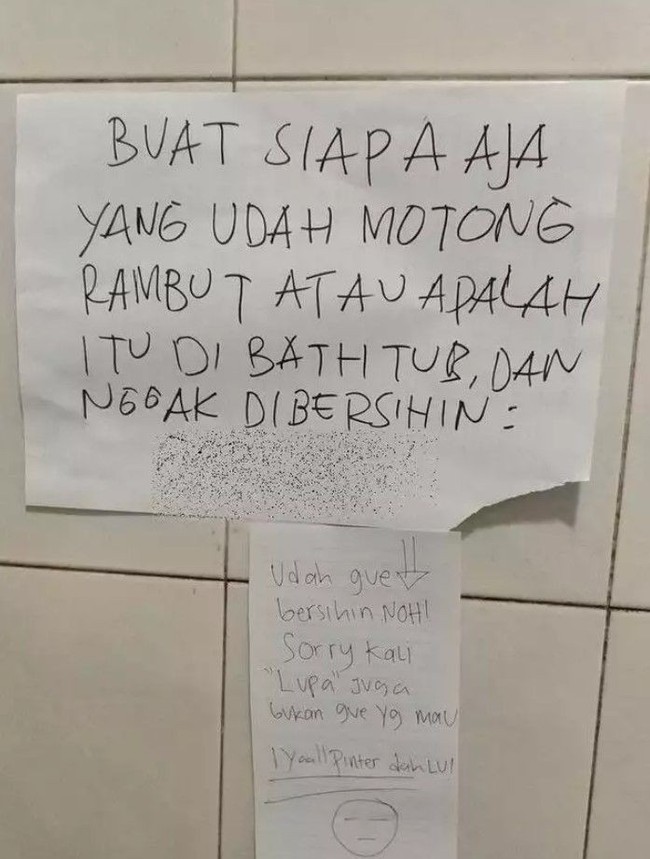 BUAT SIAPA AJA
YANG UDAH MOTONG
RAMBUT ATAU APALAH
ITU DI BATHTUB, DAN
NGGAK DIBERSIHIN :
Udah gue
bersihin NOH!
Sorry kali
"Lupa" juga
bukan gue yg mau
IYaall Pinter dah LU!